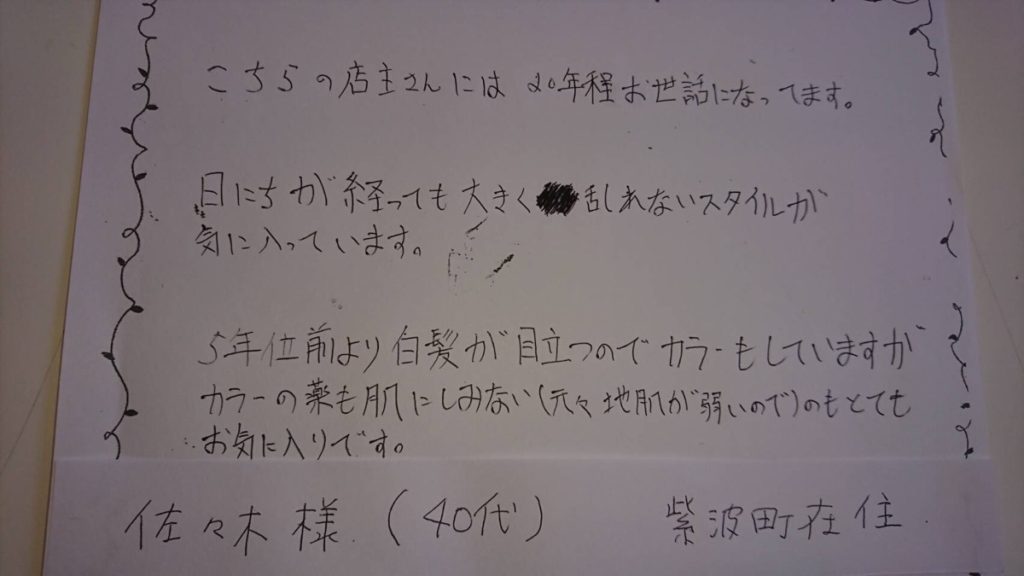 こちらの店主さんには20年程お世話になってます。
日にちが経っても大きく乱れないスタイルが
気に入っています。
5年位前より白髪が目立つのでカラーもしていますが
カラーの薬も肌にしみない(元々地肌が弱いので)のもとても
お気に入りです。
佐々木様(40代) 紫波町在住